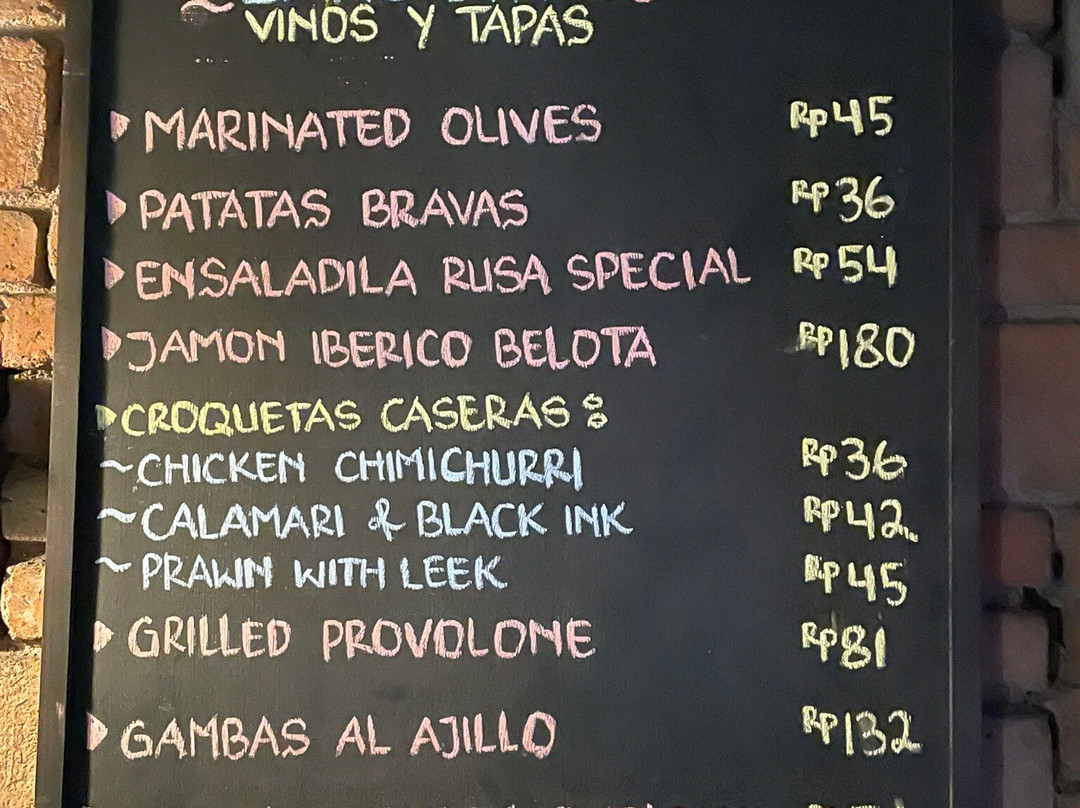 VINOS Y TAPAS
MARINATED OLIVES Rp45
PATATAS BRAVAS Rp36
ENSALADILA RUSA SPECIAL Rp54
JAMON IBERICO BELOTA Rp180
CROQUETAS CASERAS:
~CHICKEN CHIMICHURRI Rp36
~CALAMARI & BLACK INK Rp42.
~PRAWN WITH LEEK Rp45
GRILLED PROVOLONE Rp81
GAMBAS AL AJILLO Rp132